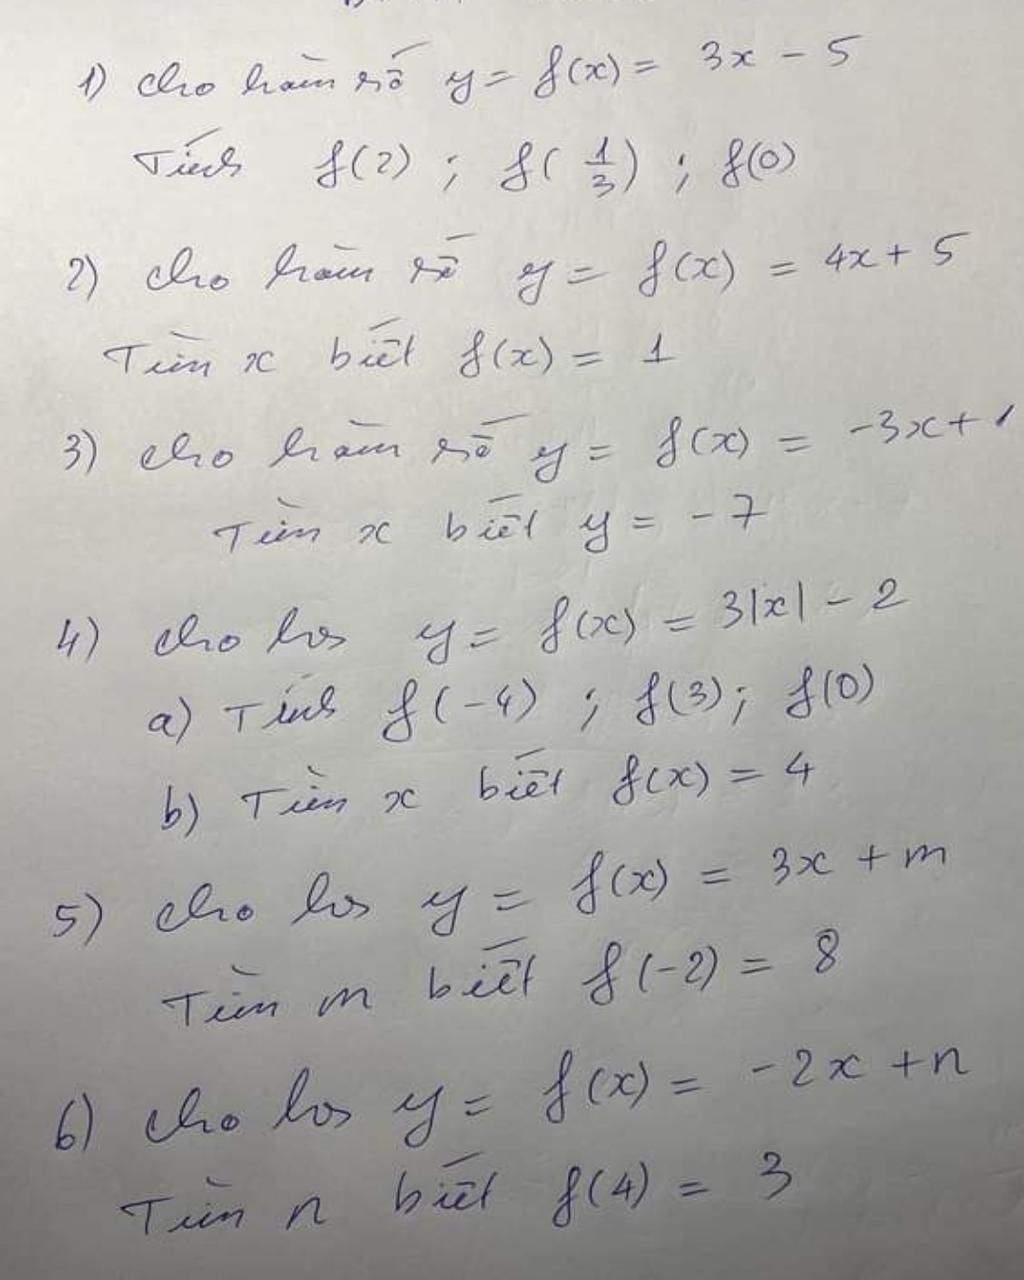 1) Cho hàm số y = f(x) = 3x - 5
Tính f(2) ; f(1/3) ; f(0)
2) Cho hàm số y = f(x) = 4x + 5
Tìm x biết f(x) = 1
3) Cho hàm số y = f(x) = -3x + 1
Tìm x biết y = -7
4) Cho hs y = f(x) = 3|x| - 2
a) Tính f(-4) ; f(3) ; f(0)
b) Tìm x biết f(x) = 4
5) Cho hs y = f(x) = 3x + m
Tìm m biết f(-2) = 8
6) Cho hs y = f(x) = -2x + n
Tìm n biết f(4) = 3